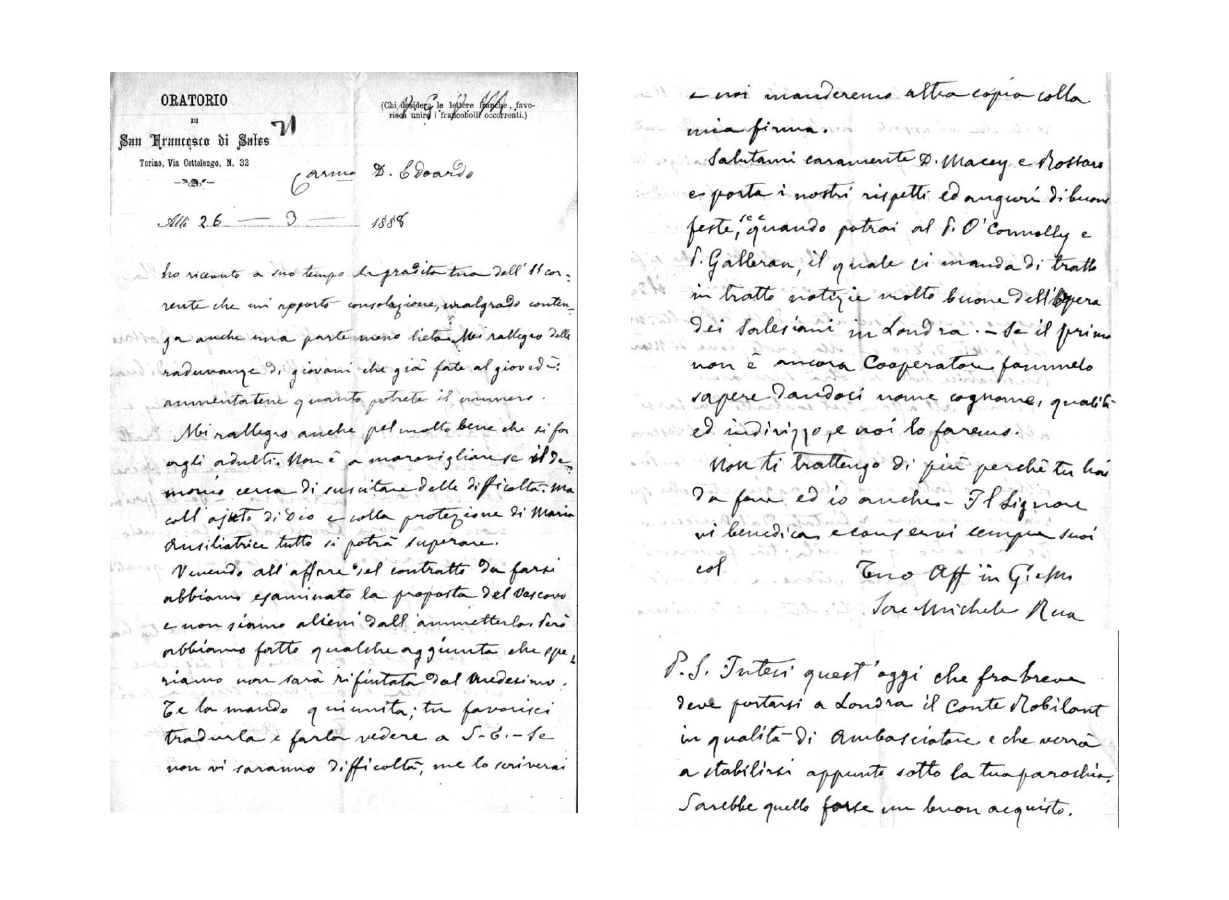 ORATORIO
DI
San Francesco di Sales
Torino, Via Cottolengo, N. 32
(Chi desidera le lettere franche, favo-
risca unire i francobolli occorrenti.)
21
Carmo D. Edoardo
Alli 26 — 3 — 1888
ho ricevuto a suo tempo la gradita tua dell' 11 cor-
rente che mi apportò consolazione, malgrado conten-
ga anche una parte meno lieta. Mi rallegro delle
radunanze di giovani che già fate al giovedì:
aumentatene quanto potrete il numero.
Mi rallegro anche pel molto bene che si fa
agli adulti. Non è a maravigliare se il de-
monio cerca di suscitare delle difficoltà. Ma
coll' ajuto di Dio e colla protezione di Maria
Ausiliatrice tutto si potrà superare.
Venendo all' affare del contratto da farsi
abbiamo esaminato la proposta del Vescovo
e non siamo alieni dall' ammetterla. Però
abbiamo fatto qualche aggiunta che spe-
riamo non sarà rifiutata dal medesimo.
Te la mando quiunita; tu favorisci
tradurla e farla vedere a S. E. - Se
non vi saranno difficoltà, me lo scriverai
e noi manderemo altra copia colla
mia firma.
Salutami caramente D. Macey e Rossaro
e porta i nostri rispetti ed auguri di buone
feste, quando potrai al P. O'Connolly e
P. Galleran, il quale ci manda di tratto
in tratto notizie molto buone dell'Opera
dei Salesiani in Londra. - Se il primo
non è ancora Cooperatore fammelo
sapere dandoci nome cognome, qualità
ed indirizzo, e noi lo faremo.
Non ti trattengo di più perchè tu hai
da fare ed io anche - Il Signore
vi benedica e conservi sempre suoi
col.
Tuo Aff in G. e M.
Sac. Michele Rua
P. S. Intesi quest' oggi che fra breve
deve portarsi a Londra il Conte Robilant
in qualità di Ambasciatore e che verrà
a stabilirsi appunto sotto la tua parochia.
Sarebbe quello forse un buon acquisto.